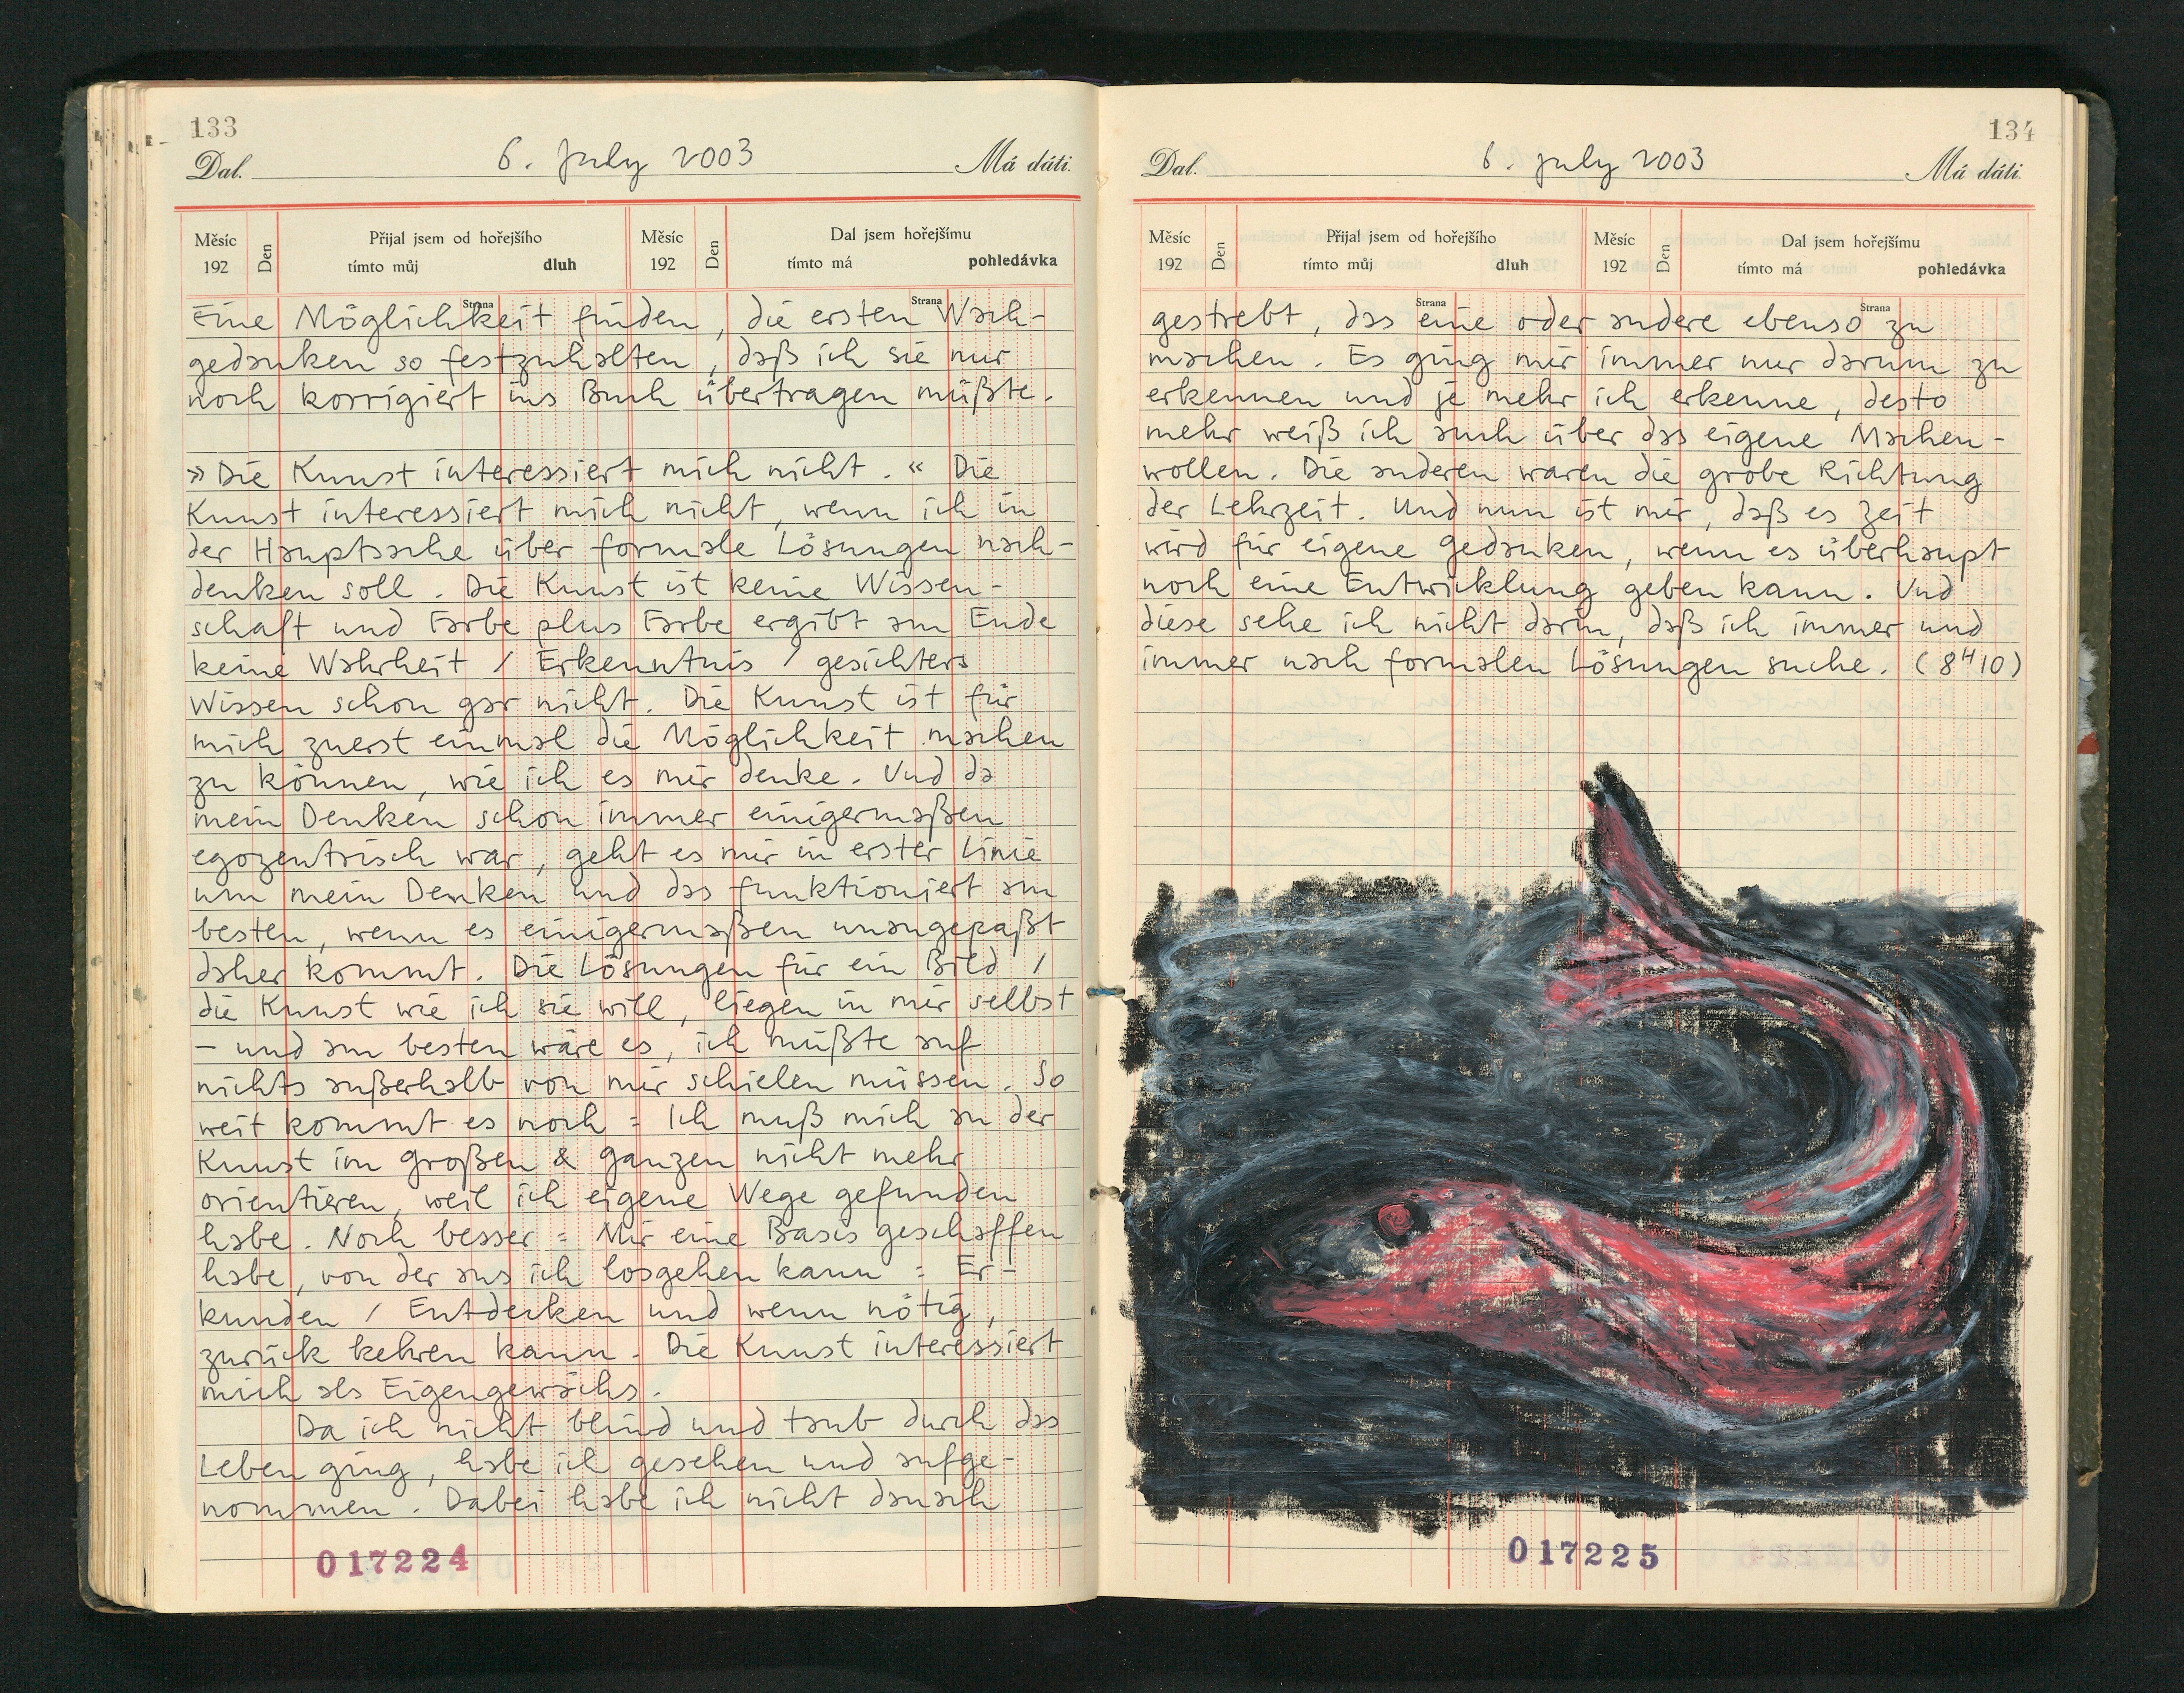 133
Dal. 6. july 2003 Má dáti.
Měsíc 192 Den Přijal jsem od hořejšího tímto můj dluh Měsíc 192 Den Dal jsem hořejšímu tímto má pohledávka
Strana Strana
Eine Möglichkeit finden, die ersten Wach-
gedanken so festzuhalten, daß ich sie nur
noch korrigiert ins Buch übertragen müßte.
»Die Kunst interessiert mich nicht.« Die
Kunst interessiert mich nicht, wenn ich in
der Hauptsache über formale Lösungen nach-
denken soll. Die Kunst ist keine Wissen-
schaft und Farbe plus Farbe ergibt am Ende
keine Wahrheit / Erkenntnis / gesichters
Wissen schon gar nicht. Die Kunst ist für
mich zuerst einmal die Möglichkeit machen
zu können, wie ich es mir denke. Und da
mein Denken schon immer einigermaßen
egozentrisch war, geht es mir in erster Linie
um mein Denken und das funktioniert am
besten, wenn es einigermaßen unangepaßt
daher kommt. Die Lösungen für ein Bild /
die Kunst wie ich sie will, liegen in mir selbst
– und am besten wäre es, ich müßte auf
nichts außerhalb von mir schielen müssen. So
weit kommt es noch = Ich muß mich an der
Kunst im großen & ganzen nicht mehr
orientieren, weil ich eigene Wege gefunden
habe. Noch besser = Mir eine Basis geschaffen
habe, von der aus ich losgehen kann = Er-
kunden / Entdecken und wenn nötig,
zurück kehren kann. Die Kunst interessiert
mich als Eigengewächs.
Da ich nicht blind und taub durch das
Leben ging, habe ich gesehen und aufge-
nommen. Dabei habe ich nicht danach
017224
134
Dal. 6. july 2003 Má dáti.
Měsíc 192 Den Přijal jsem od hořejšího tímto můj dluh Měsíc 192 Den Dal jsem hořejšímu tímto má pohledávka
Strana Strana
gestrebt, das eine oder andere ebenso zu
machen. Es ging mir immer nur darum zu
erkennen und je mehr ich erkenne, desto
mehr weiß ich auch über das eigene Machen-
wollen. Die anderen waren die grobe Richtung
der Lehrzeit. Und nun ist mir, daß es Zeit
wird für eigene Gedanken, wenn es überhaupt
noch eine Entwicklung geben kann. Und
diese sehe ich nicht darin, daß ich immer und
immer nach formalen Lösungen suche. (8ᴴ10)
017225